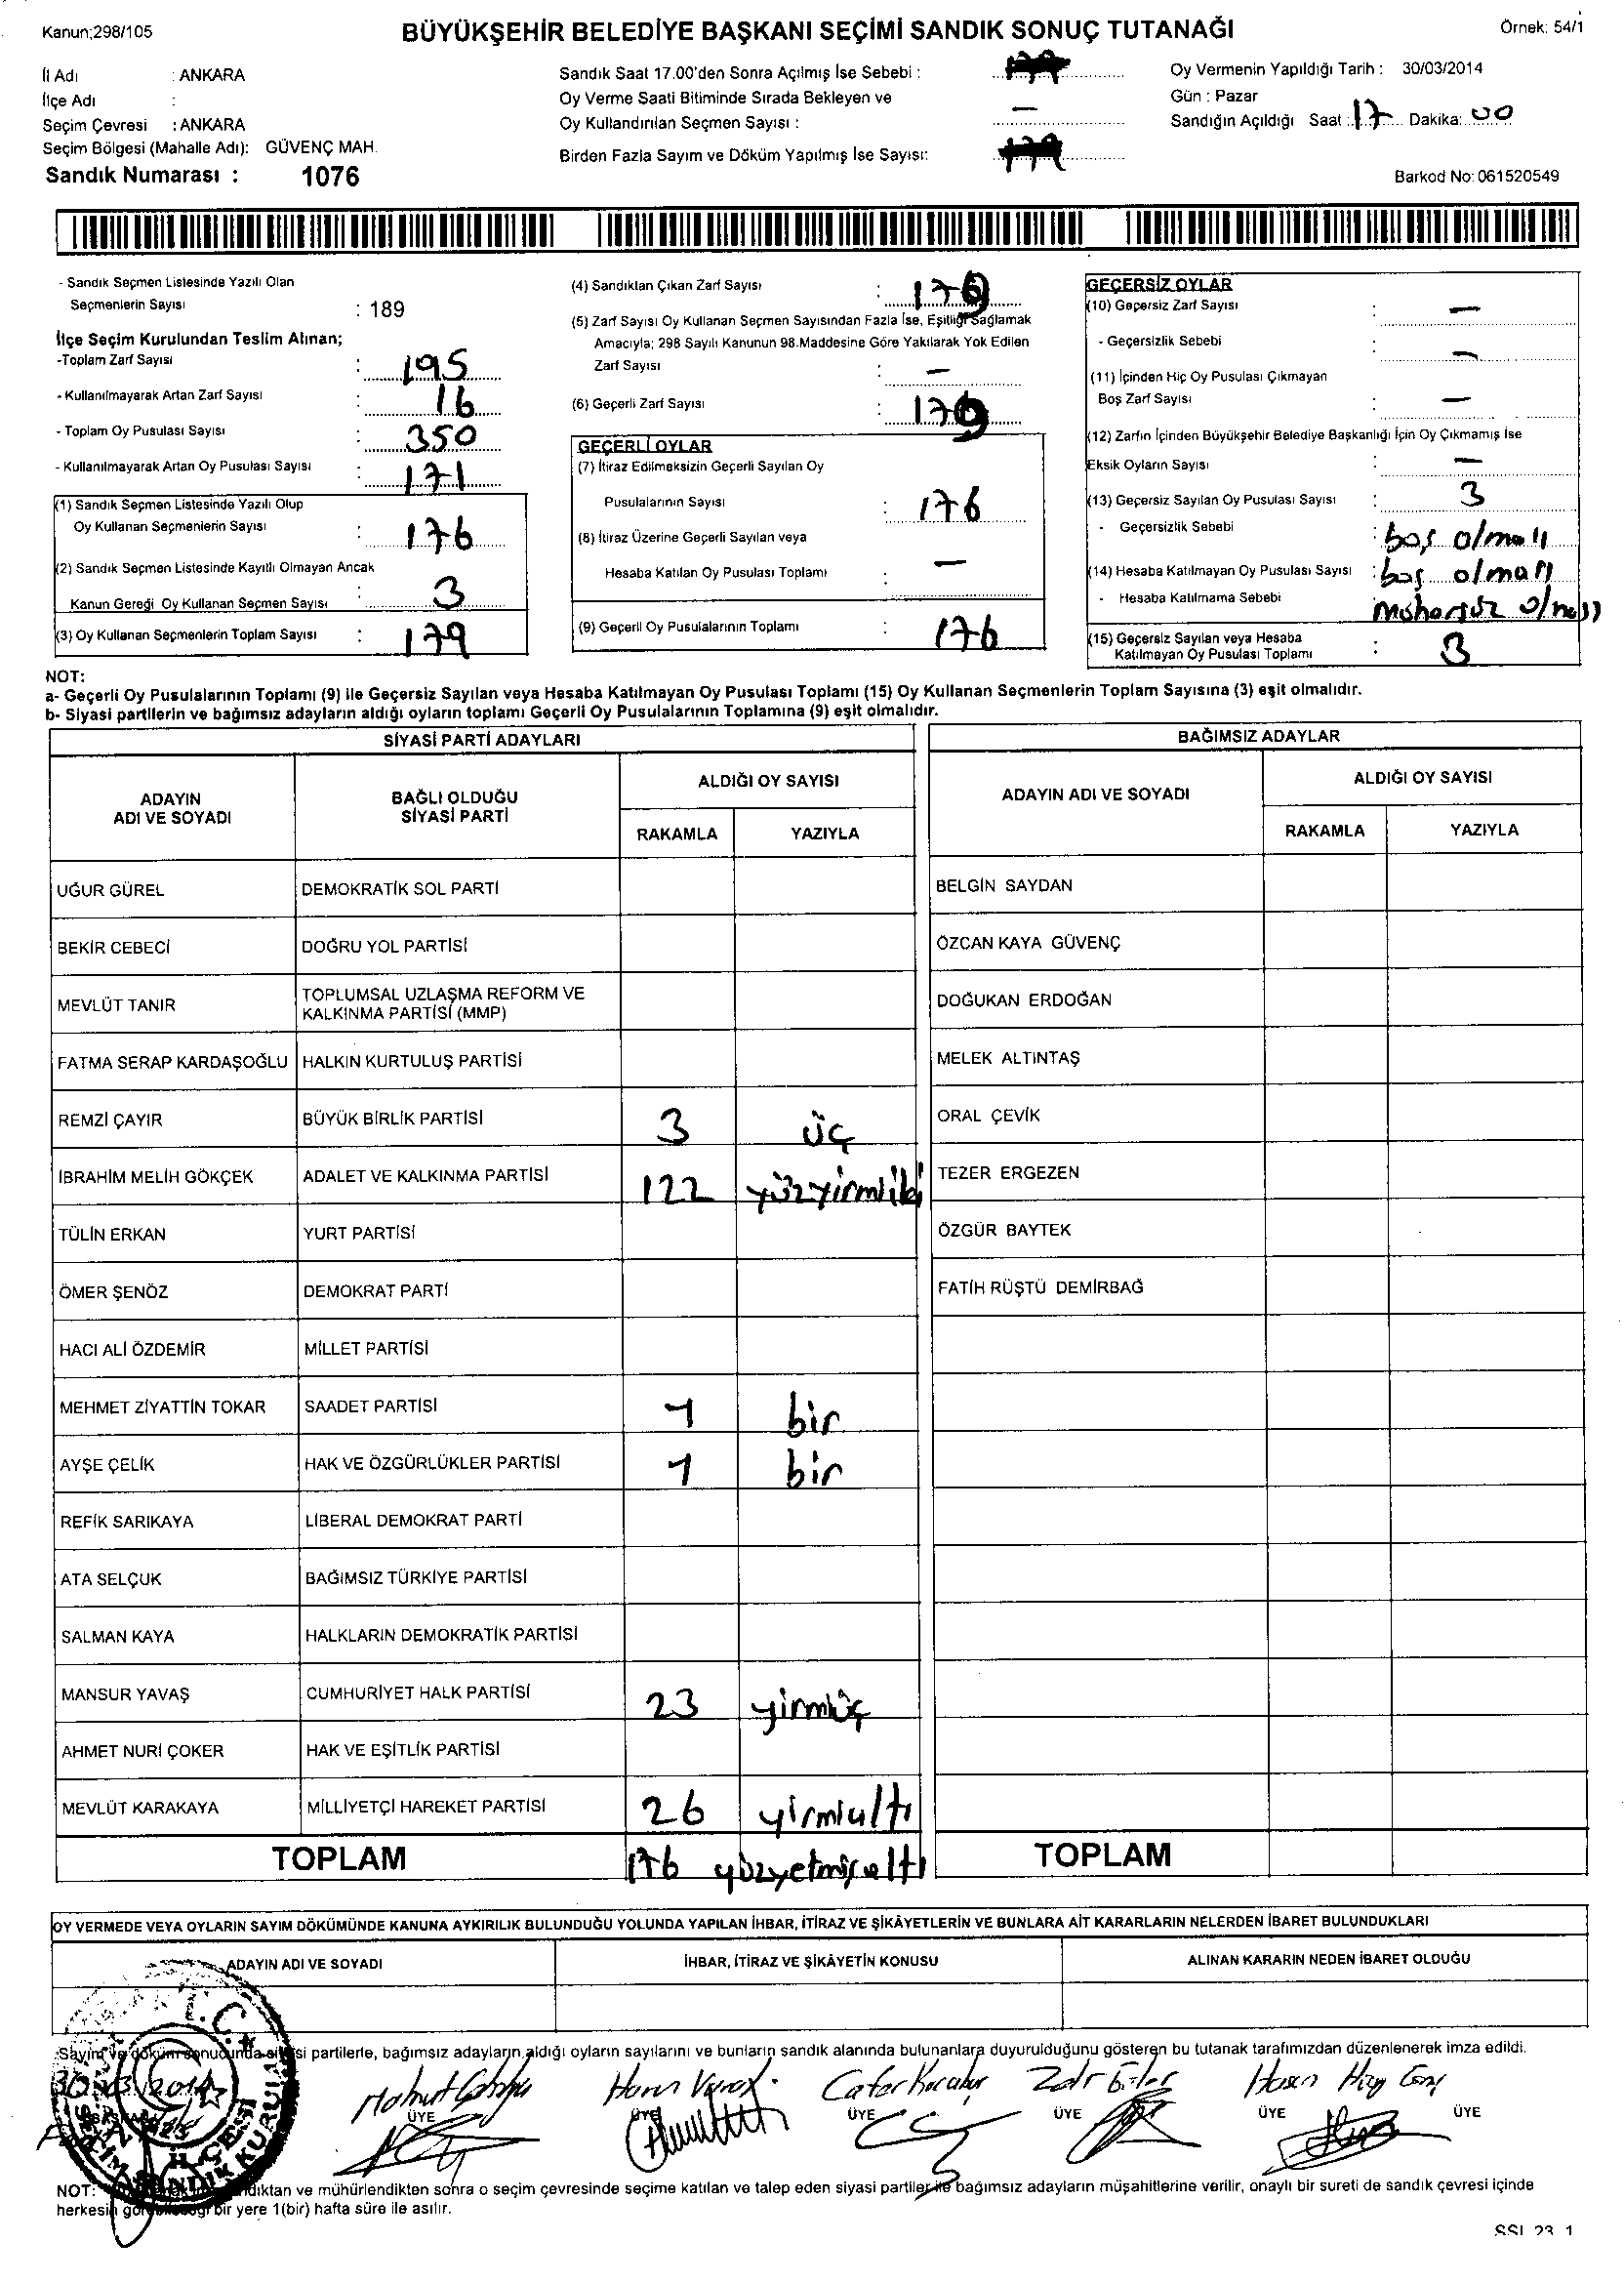 Kanun;298/105
BÜYÜKŞEHİR BELEDİYE BAŞKANI SEÇİMİ SANDIK SONUÇ TUTANAĞI
Örnek: 54/1
İl Adı : ANKARA
İlçe Adı :
Seçim Çevresi : ANKARA
Seçim Bölgesi (Mahalle Adı): GÜVENÇ MAH.
Sandık Numarası : 1076
Sandık Saat 17.00'den Sonra Açılmış İse Sebebi :
Oy Verme Saati Bitiminde Sırada Bekleyen ve
Oy Kullandırılan Seçmen Sayısı : —
Birden Fazla Sayım ve Döküm Yapılmış İse Sayısı:
Oy Vermenin Yapıldığı Tarih : 30/03/2014
Gün : Pazar
Sandığın Açıldığı Saat : 17 Dakika: 00
Barkod No: 061520549
- Sandık Seçmen Listesinde Yazılı Olan
Seçmenlerin Sayısı : 189
İlçe Seçim Kurulundan Teslim Alınan;
-Toplam Zarf Sayısı : 195
- Kullanılmayarak Artan Zarf Sayısı : 16
- Toplam Oy Pusulası Sayısı : 350
- Kullanılmayarak Artan Oy Pusulası Sayısı : 171
(1) Sandık Seçmen Listesinde Yazılı Olup
Oy Kullanan Seçmenlerin Sayısı : 176
(2) Sandık Seçmen Listesinde Kayıtlı Olmayan Ancak
Kanun Gereği Oy Kullanan Seçmen Sayısı : 3
(3) Oy Kullanan Seçmenlerin Toplam Sayısı : 179
(4) Sandıktan Çıkan Zarf Sayısı : 179
(5) Zarf Sayısı Oy Kullanan Seçmen Sayısından Fazla İse, Eşitliği Sağlamak
Amacıyla; 298 Sayılı Kanunun 98.Maddesine Göre Yakılarak Yok Edilen
Zarf Sayısı : —
(6) Geçerli Zarf Sayısı : 179
GEÇERLİ OYLAR
(7) İtiraz Edilmeksizin Geçerli Sayılan Oy
Pusulalarının Sayısı : 176
(8) İtiraz Üzerine Geçerli Sayılan veya
Hesaba Katılan Oy Pusulası Toplamı : —
(9) Geçerli Oy Pusulalarının Toplamı : 176
GEÇERSİZ OYLAR
(10) Geçersiz Zarf Sayısı : —
- Geçersizlik Sebebi : —
(11) İçinden Hiç Oy Pusulası Çıkmayan
Boş Zarf Sayısı : —
(12) Zarfın İçinden Büyükşehir Belediye Başkanlığı İçin Oy Çıkmamış İse
Eksik Oyların Sayısı : —
(13) Geçersiz Sayılan Oy Pusulası Sayısı : 3
- Geçersizlik Sebebi : boş olması
(14) Hesaba Katılmayan Oy Pusulası Sayısı : boş olması
- Hesaba Katılmama Sebebi
(15) Geçersiz Sayılan veya Hesaba
Katılmayan Oy Pusulası Toplamı : 3
NOT:
a- Geçerli Oy Pusulalarının Toplamı (9) ile Geçersiz Sayılan veya Hesaba Katılmayan Oy Pusulası Toplamı (15) Oy Kullanan Seçmenlerin Toplam Sayısına (3) eşit olmalıdır.
b- Siyasi partilerin ve bağımsız adayların aldığı oyların toplamı Geçerli Oy Pusulalarının Toplamına (9) eşit olmalıdır.
SİYASİ PARTİ ADAYLARI
ADAYIN ADI VE SOYADI BAĞLI OLDUĞU SİYASİ PARTİ ALDIĞI OY SAYISI
RAKAMLA YAZIYLA
UĞUR GÜREL DEMOKRATİK SOL PARTİ
BEKİR CEBECİ DOĞRU YOL PARTİSİ
MEVLÜT TANIR TOPLUMSAL UZLAŞMA REFORM VE
KALKINMA PARTİSİ (MMP)
FATMA SERAP KARDAŞOĞLU HALKIN KURTULUŞ PARTİSİ
REMZİ ÇAYIR BÜYÜK BİRLİK PARTİSİ 3 üç
İBRAHİM MELİH GÖKÇEK ADALET VE KALKINMA PARTİSİ 122 yüzyirmiiki
TÜLİN ERKAN YURT PARTİSİ
ÖMER ŞENÖZ DEMOKRAT PARTİ
HACI ALİ ÖZDEMİR MİLLET PARTİSİ
MEHMET ZİYATTİN TOKAR SAADET PARTİSİ 1 bir
AYŞE ÇELİK HAK VE ÖZGÜRLÜKLER PARTİSİ 1 bir
REFİK SARIKAYA LİBERAL DEMOKRAT PARTİ
ATA SELÇUK BAĞIMSIZ TÜRKİYE PARTİSİ
SALMAN KAYA HALKLARIN DEMOKRATİK PARTİSİ
MANSUR YAVAŞ CUMHURİYET HALK PARTİSİ 23 yirmiüç
AHMET NURİ ÇOKER HAK VE EŞİTLİK PARTİSİ
MEVLÜT KARAKAYA MİLLİYETÇİ HAREKET PARTİSİ 26 yirmialtı
TOPLAM 176 yüzyetmişaltı
BAĞIMSIZ ADAYLAR
ADAYIN ADI VE SOYADI ALDIĞI OY SAYISI
RAKAMLA YAZIYLA
BELGİN SAYDAN
ÖZCAN KAYA GÜVENÇ
DOĞUKAN ERDOĞAN
MELEK ALTINTAŞ
ORAL ÇEVİK
TEZER ERGEZEN
ÖZGÜR BAYTEK
FATİH RÜŞTÜ DEMİRBAĞ
TOPLAM
OY VERMEDE VEYA OYLARIN SAYIM DÖKÜMÜNDE KANUNA AYKIRILIK BULUNDUĞU YOLUNDA YAPILAN İHBAR, İTİRAZ VE ŞİKÂYETLERİN VE BUNLARA AİT KARARLARIN NELERDEN İBARET BULUNDUKLARI
ADAYIN ADI VE SOYADI İHBAR, İTİRAZ VE ŞİKÂYETİN KONUSU ALINAN KARARIN NEDEN İBARET OLDUĞU
T.C.
Sayım ve döküm sonucunda siyasi partilerle, bağımsız adayların aldığı oyların sayılarını ve bunların sandık alanında bulunanlara duyurulduğunu gösteren bu tutanak tarafımızdan düzenlenerek imza edildi.
30/03/2014
ÜYE ÜYE ÜYE ÜYE ÜYE ÜYE
NOT: ve mühürlendikten sonra o seçim çevresinde seçime katılan ve talep eden siyasi partiler ile bağımsız adayların müşahitlerine verilir, onaylı bir sureti de sandık çevresi içinde
herkesin bir yere 1(bir) hafta süre ile asılır.